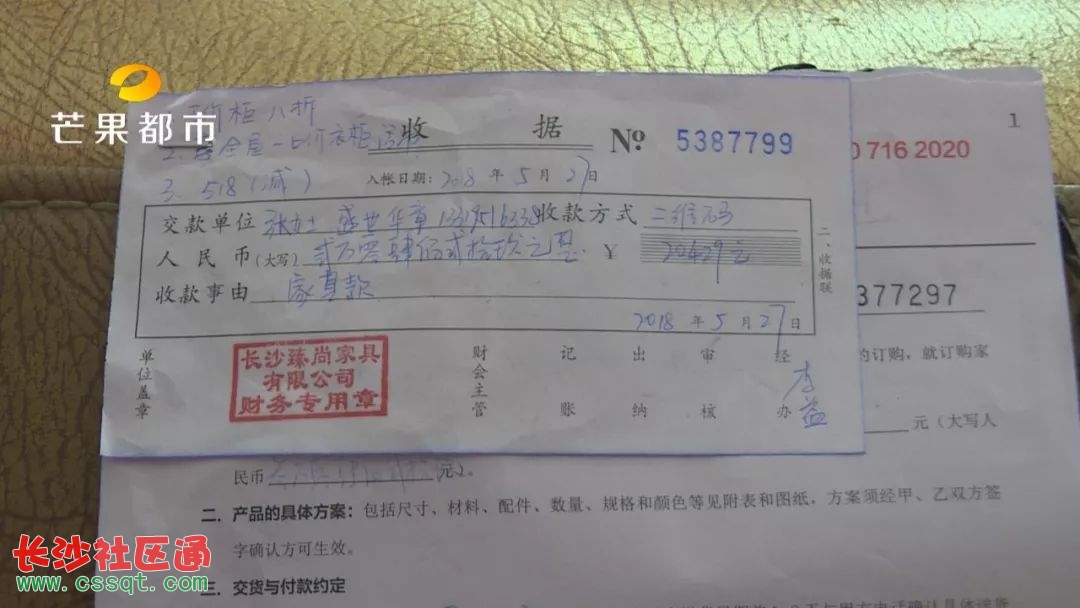 芒果都市
价柜八折
收 据 № 5387799
3. 518(减)
入帐日期:2018 年 5 月 27 日
交款单位 张女士 盛世华章 收款方式 二维码
人民币(大写) 贰万零肆佰贰拾玖元整 ¥ 20429元
收款事由 家具款
2018 年 5 月 27 日
二、收据联
单位盖章
长沙臻尚家具
有限公司
财务专用章
财会主管 记账 出纳 审核 经办 李益
1
0 716 2020
377297
的订购,就订购家
元(大写人
民币 元)。
二. 产品的具体方案:包括尺寸、材料、配件、数量、规格和颜色等见附表和图纸,方案须经甲、乙双方签
字确认方可生效。
三. 交货与付款约定
长沙社区通
www.cssqt.com